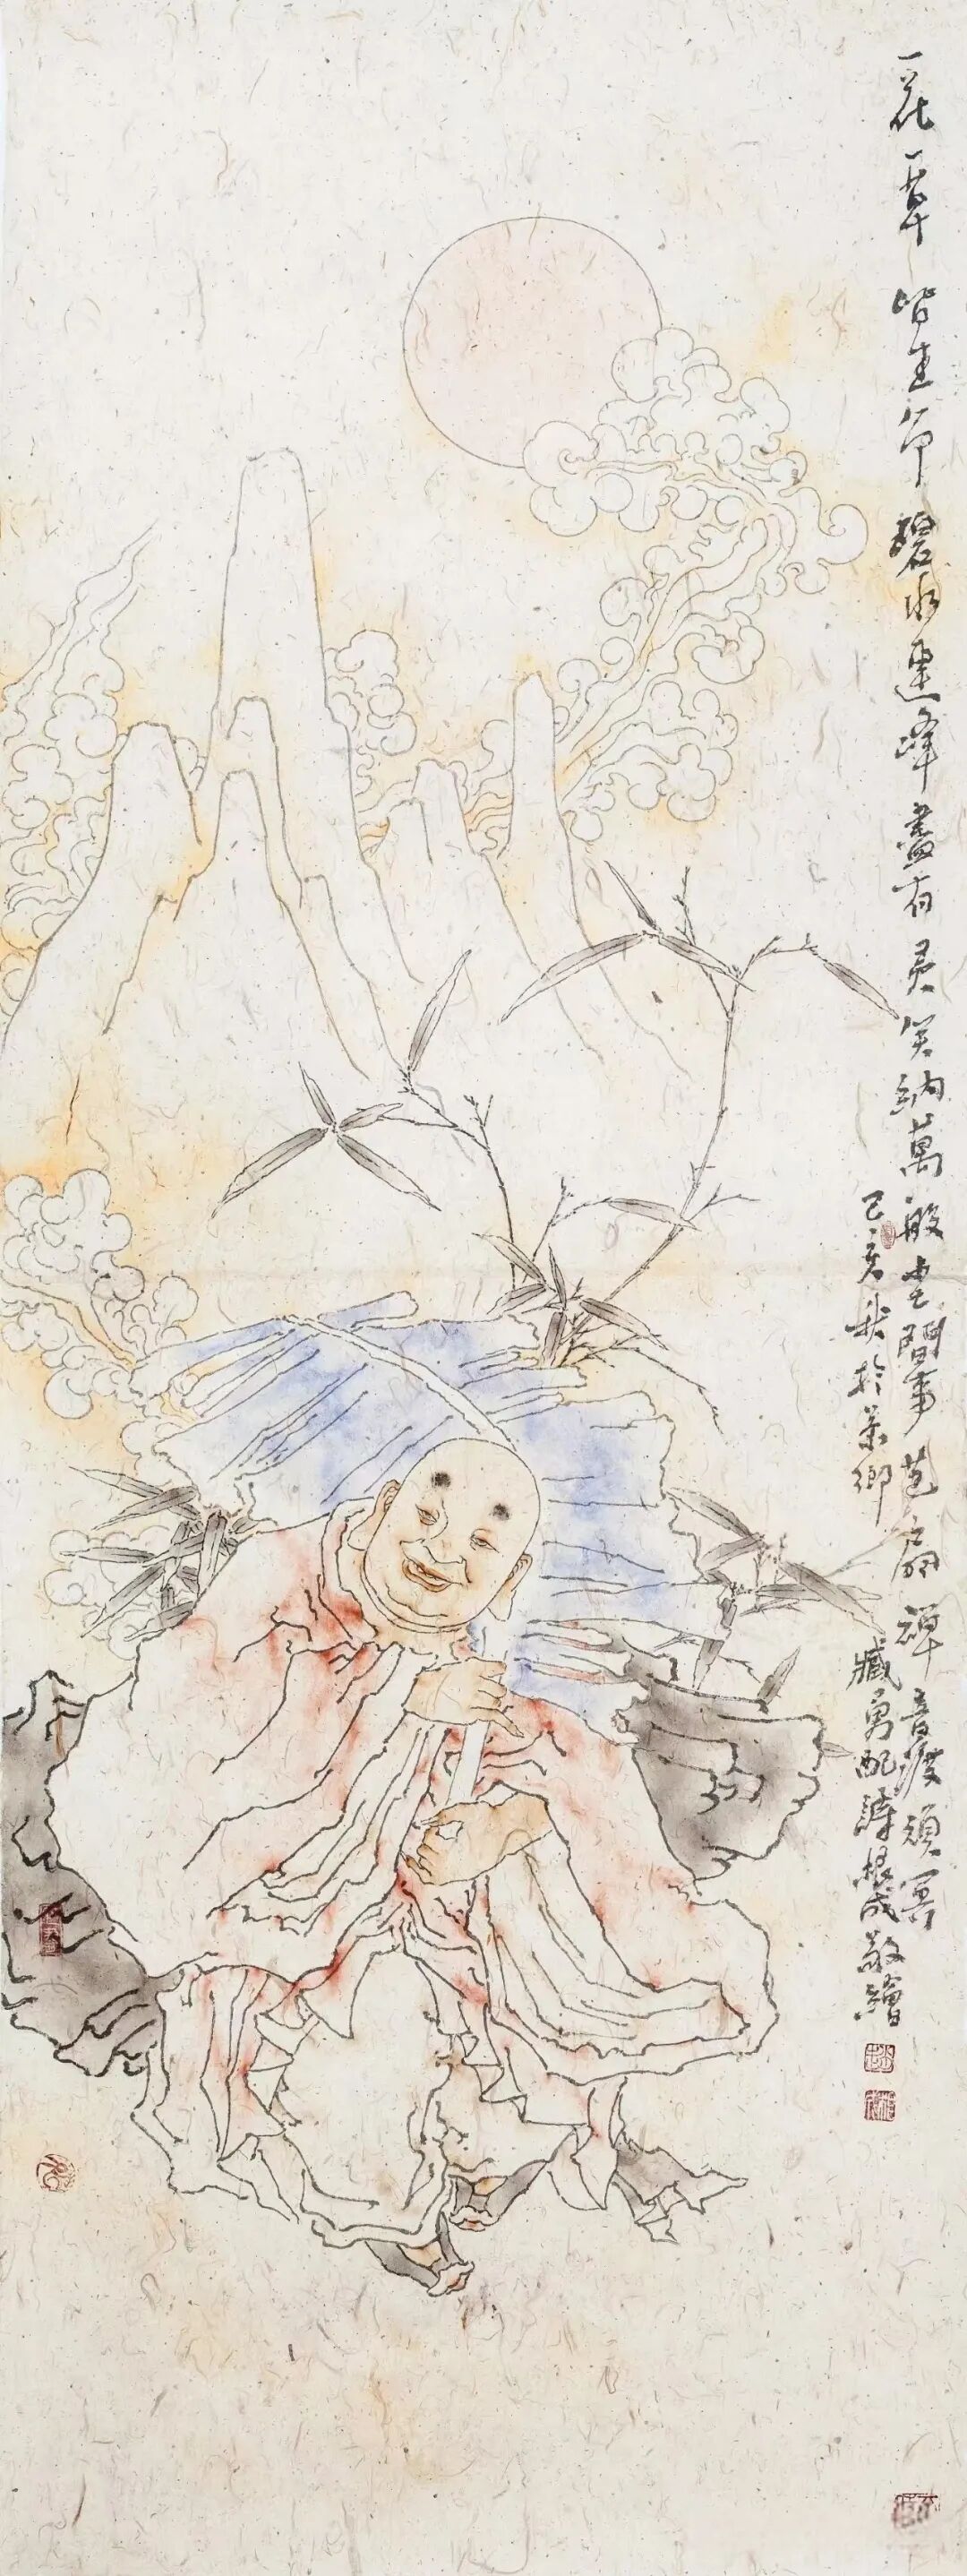 一花一草皆生命碧水連峰盡有灵笑納萬般世間事芭扇禪音渡頑冥
己亥秋於茶鄉臧勇配詩根成敬繪